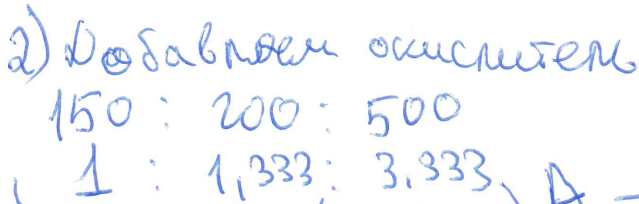 2) Добавляем окислитель
150 : 200 : 500
1 : 1,333 : 3.333